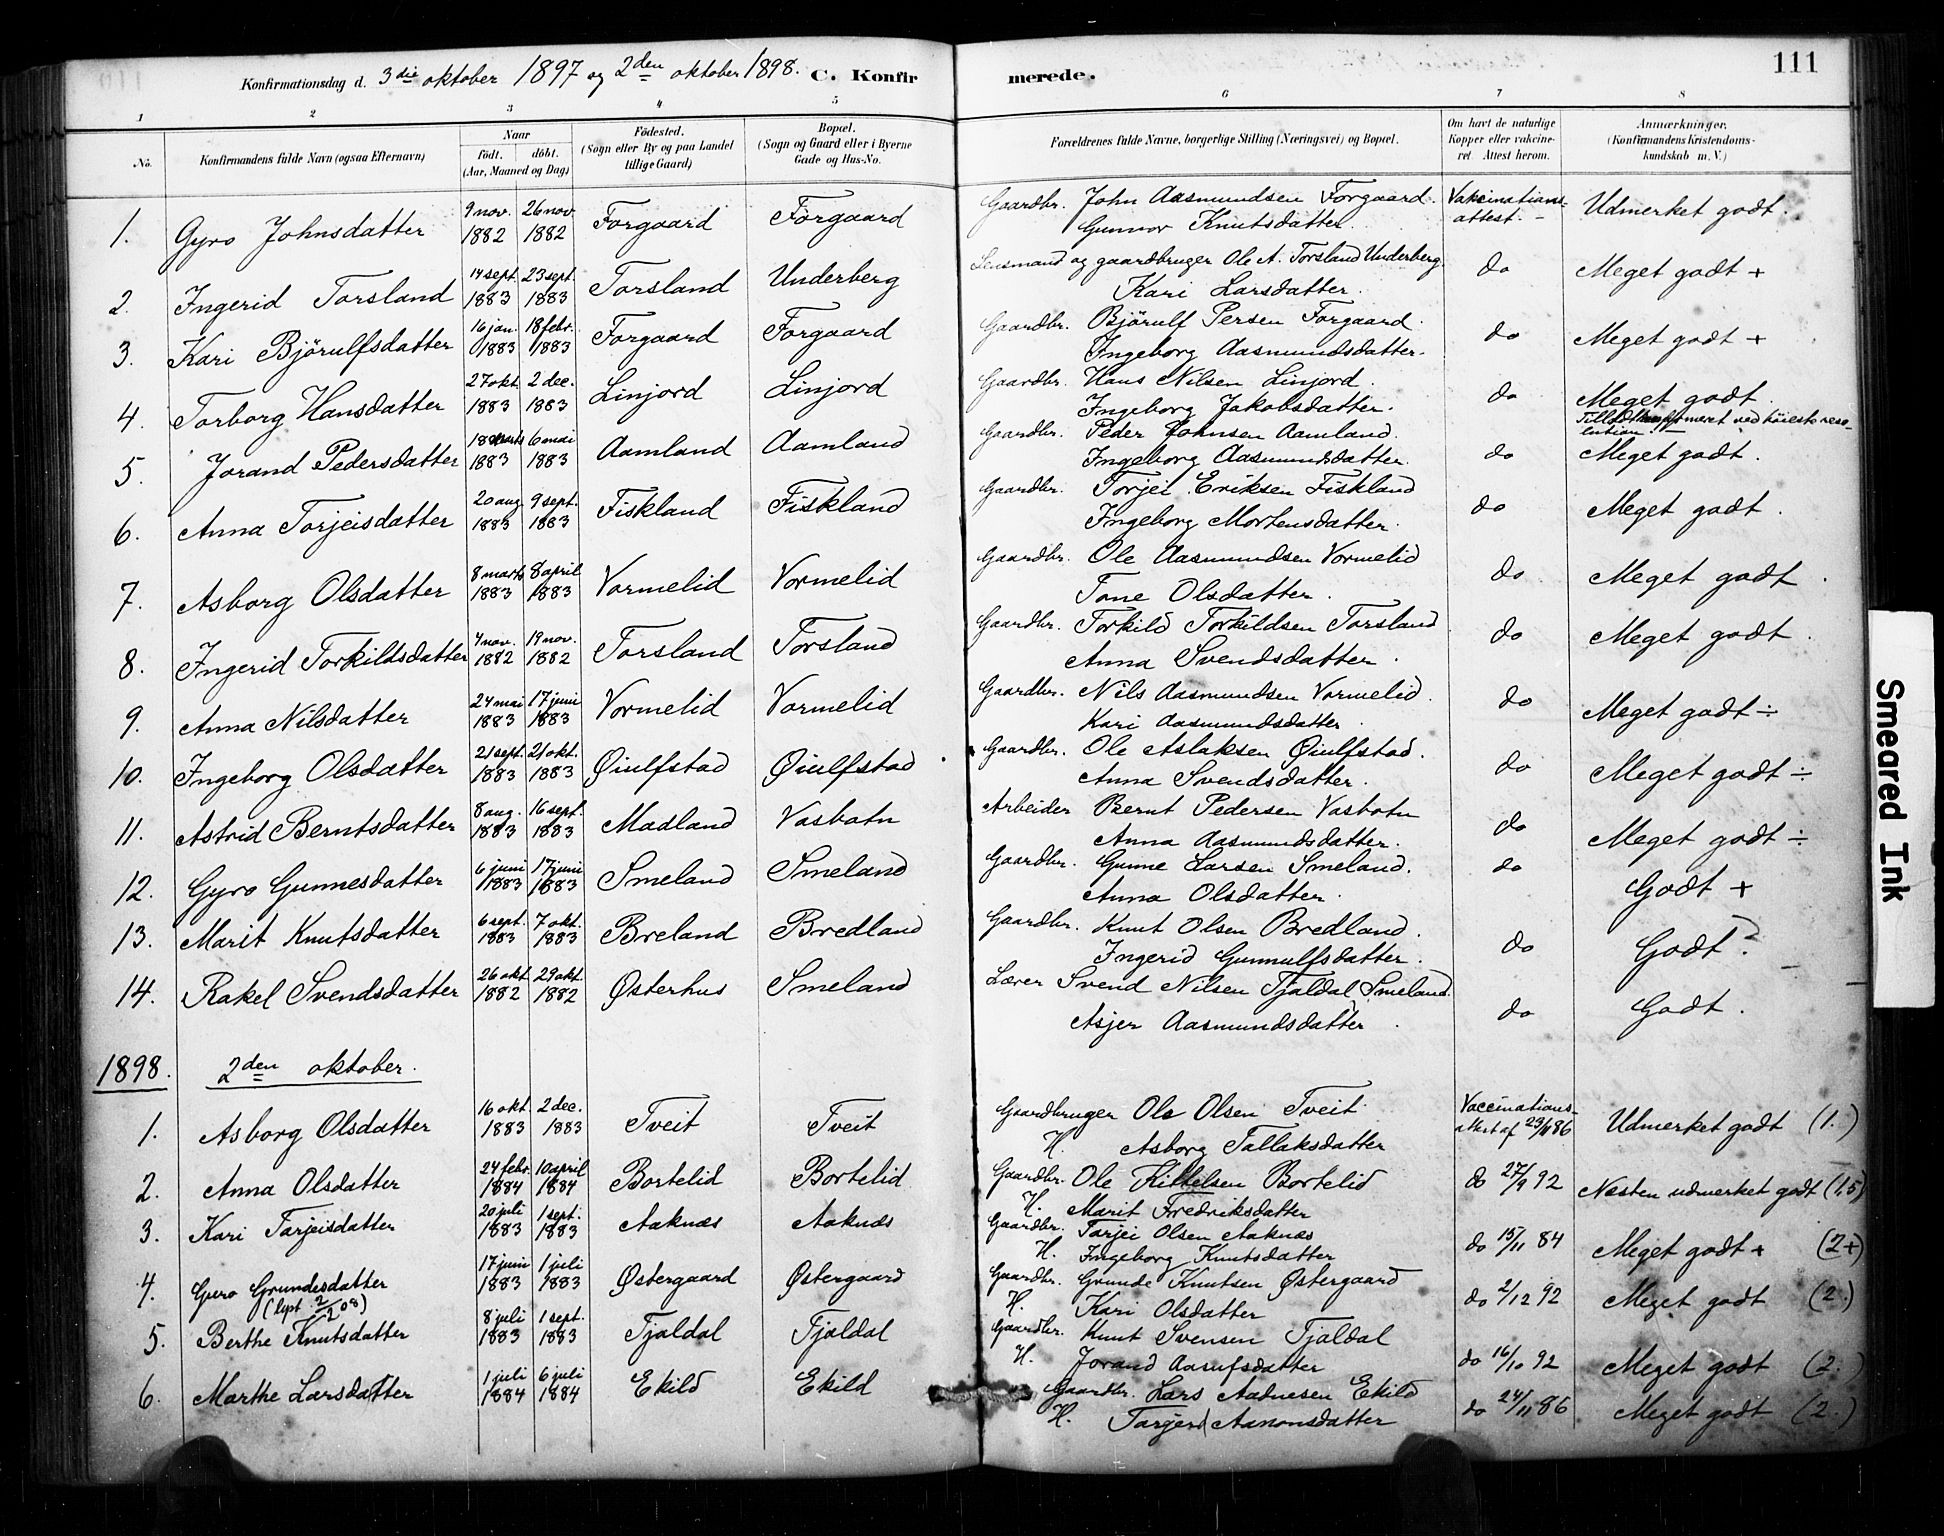 111
Konfirmationsdag d. 3die oktober 1897 og 2den oktober 1898. C. Konfirmerede.
1 2 3 4 5 6 7 8
No. Konfirmandens fulde Navn (ogsaa Efternavn) Naar født. døbt. (Aar, Maaned og Dag) Födested. (Sogn eller By og paa Landet tillige Gaard) Bopæl. (Sogn og Gaard eller i Byerne Gade og Hus-No. Forældrenes fulde Navne, borgerlige Stilling (Næringsvei) og Bopæl. Om havt de naturlige Kopper eller vakcineret. Attest herom. Anmærkninger. (Konfirmandens Kristendomskundskab m. V.)
1. Gyro Johnsdatter 9 nov. 1882 26 nov 1882 Forgaard Forgaard Gaardbr. John Aasmundsen Forgaard. Gunnor Knutsdatter Vakcinationsattest. Udmerket godt.
2. Ingerid Torsland 14 sept. 1883 23 sept. 1883 Torsland Underberg Lensmand og gaardbruger Ole A. Torsland Underberg. Kari Larsdatter. do Meget godt +
3. Kari Bjørulfsdatter 16 jan. 1883 18 febr. 1883 Forgaard Forgaard Gaardbr. Bjørulf Persen Forgaard. Ingeborg Aasmundsdatter. do Meget godt +
4. Torborg Hansdatter 27 okt. 1883 2 dec. 1883 Linjord Linjord Gaardbr. Hans Nilsen Linjord. Ingeborg Jakobsdatter. do Meget godt. ved høieste resolution.
5. Jorand Pedersdatter 18 marts 1883 6 mai 1883 Aamland Aamland Gaardbr. Peder Johnsen Aamland. Ingeborg Aasmundsdatter. do Meget godt.
6. Anna Torjeisdatter 20 aug. 1883 9 sept. 1883 Fiskland Fiskland Gaardbr. Torjei Eriksen Fiskland Ingeborg Mortensdatter. do Meget godt.
7. Asborg Olsdatter 8 marts 1883 8 april 1883 Vormelid Vormelid Gaardbr. Ole Aasmundsen Vormelid Tone Olsdatter. do Meget godt.
8. Ingerid Torkildsdatter 4 nov. 1882 19 nov. 1882 Torsland Torsland Gaardbr. Torkild Torkildsen Torsland Anna Svendsdatter. do Meget godt.
9. Anna Nilsdatter 24 mai 1883 17 juni 1883 Vormelid Vormelid Gaardbr. Nils Aasmundsen Vormelid. Kari Aasmundsdatter do Meget godt ÷
10. Ingeborg Olsdatter 21 sept. 1883 21 okt. 1883 Øiulfstad Øiulfstad. Gaardbr. Ole Aslaksen Øiulfstad. Anna Svendsdatter. do Meget godt ÷
11. Astrid Berntsdatter 8 aug. 1883 16 sept. 1883 Madland Vasbotn Arbeider Bernt Pedersen Vasbotn Anna Aasmundsdatter. do Meget godt ÷
12. Gyro Gunnesdatter 6 juni 1883 17 juni 1883 Smeland Smeland Gaardbr. Gunne Larsen Smeland. Anna Olsdatter. do Godt +
13. Marit Knutsdatter 6 sept. 1883 7 okt. 1883 Breland Bredland Gaardbr. Knut Olsen Bredland. Ingerid Gunnulfsdatter. do Godt
14. Rakel Svendsdatter 26 okt. 1882 29 okt. 1882 Østerhus Smeland Lærer Svend Nilsen Tjaldal Smeland. Asjer Aasmundsdatter do Godt.
1898. 2den oktober.
1. Asborg Olsdatter 16 okt. 1883 2 dec. 1883 Tveit Tveit Gaardbruger Ole Olsen Tveit. H. Asborg Tallaksdatter Vaccinationsattest af 23/11 86 Udmerket godt (1.)
2. Anna Olsdatter 24 febr. 1884 10 april 1884 Bortelid Bortelid Gaardbr. Ole Kittelsen Bortelid H. Marit Fredriksdatter do 27/9 92 Næsten udmerket godt (1,5)
3. Kari Tarjeisdatter 20 juli 1883 1 sept. 1883 Aaknæs Aaknæs Gaardbr. Tarjei Olsen Aaknæs H. Ingeborg Knutsdatter do 15/11 84 Meget godt + (2+)
4. Guro Grundesdatter 17 juni 1883 1 juli 1883 Østergaard Østergaard Gaardbr. Grunde Knutsen Østergaard H. Kari Olsdatter do 2/12 92 Meget godt (2.)
5. Berthe Knutsdatter 8 juli 1883 1 sept. 1883 Tjaldal Tjaldal Gaardbr. Knut Svensen Tjaldal H. Jorand do 16/10 92 Meget godt (2.)
6. Marthe Larsdatter 1 juli 1884 6 juli 1884 Ekild Ekild Gaardbr. Lars Aadnesen Ekild H. Aanonsdatter do 24/11 86 Meget godt (2.)
Smeared Ink